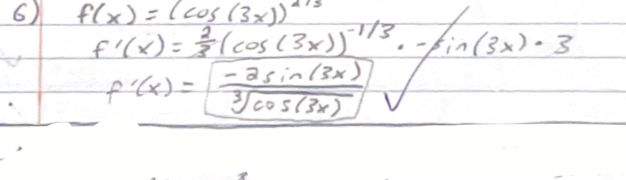 6) f(x) = (cos(3x))^2/3
f'(x) = 2/3 (cos(3x))^-1/3 · -sin(3x) · 3
f'(x) = -2sin(3x) / ∛cos(3x)